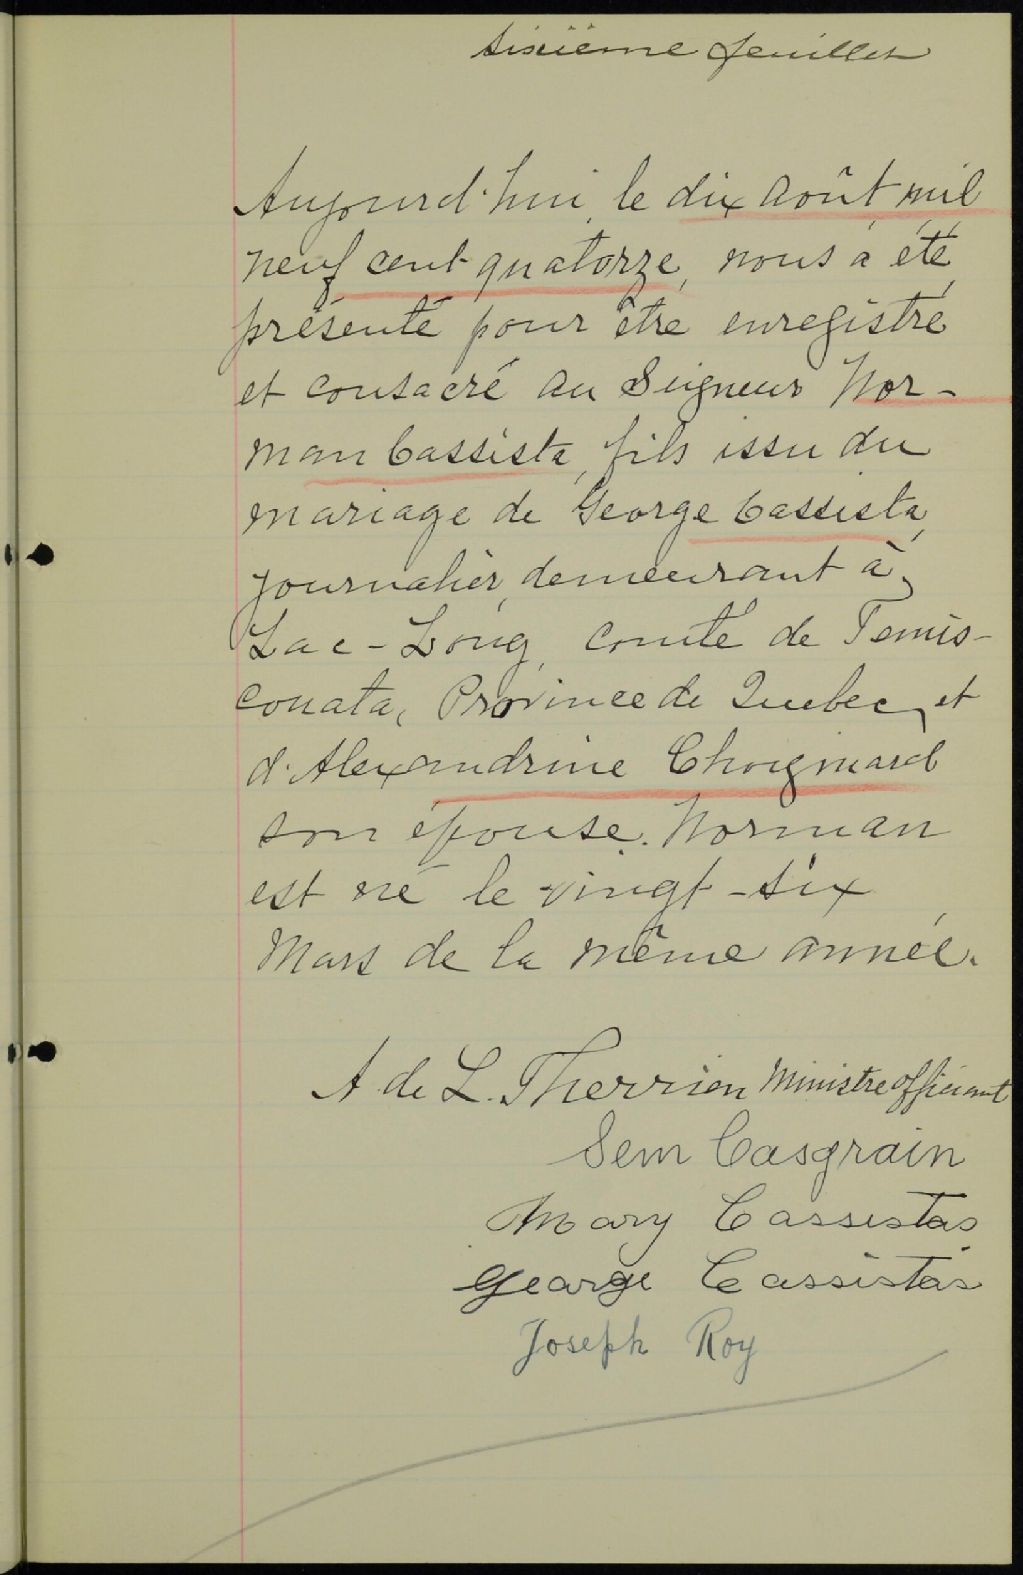 sixième feuillet
Aujourd'hui, le dix août mil
neuf cent quatorze, nous a été
présenté pour être enregistré
et consacré au Seigneur Nor-
man Cassista, fils issu du
mariage de George Cassista,
journalier, demeurant à
Lac-Long, comté de Temis-
couata, Province de Quebec, et
d'Alexandrine Choignard
son épouse. Norman
est né le vingt-six
Mars de la même année.
A de L. Therrien Ministre officiant
Sem Casgrain
Mary Cassistas
George Cassistas
Joseph Roy